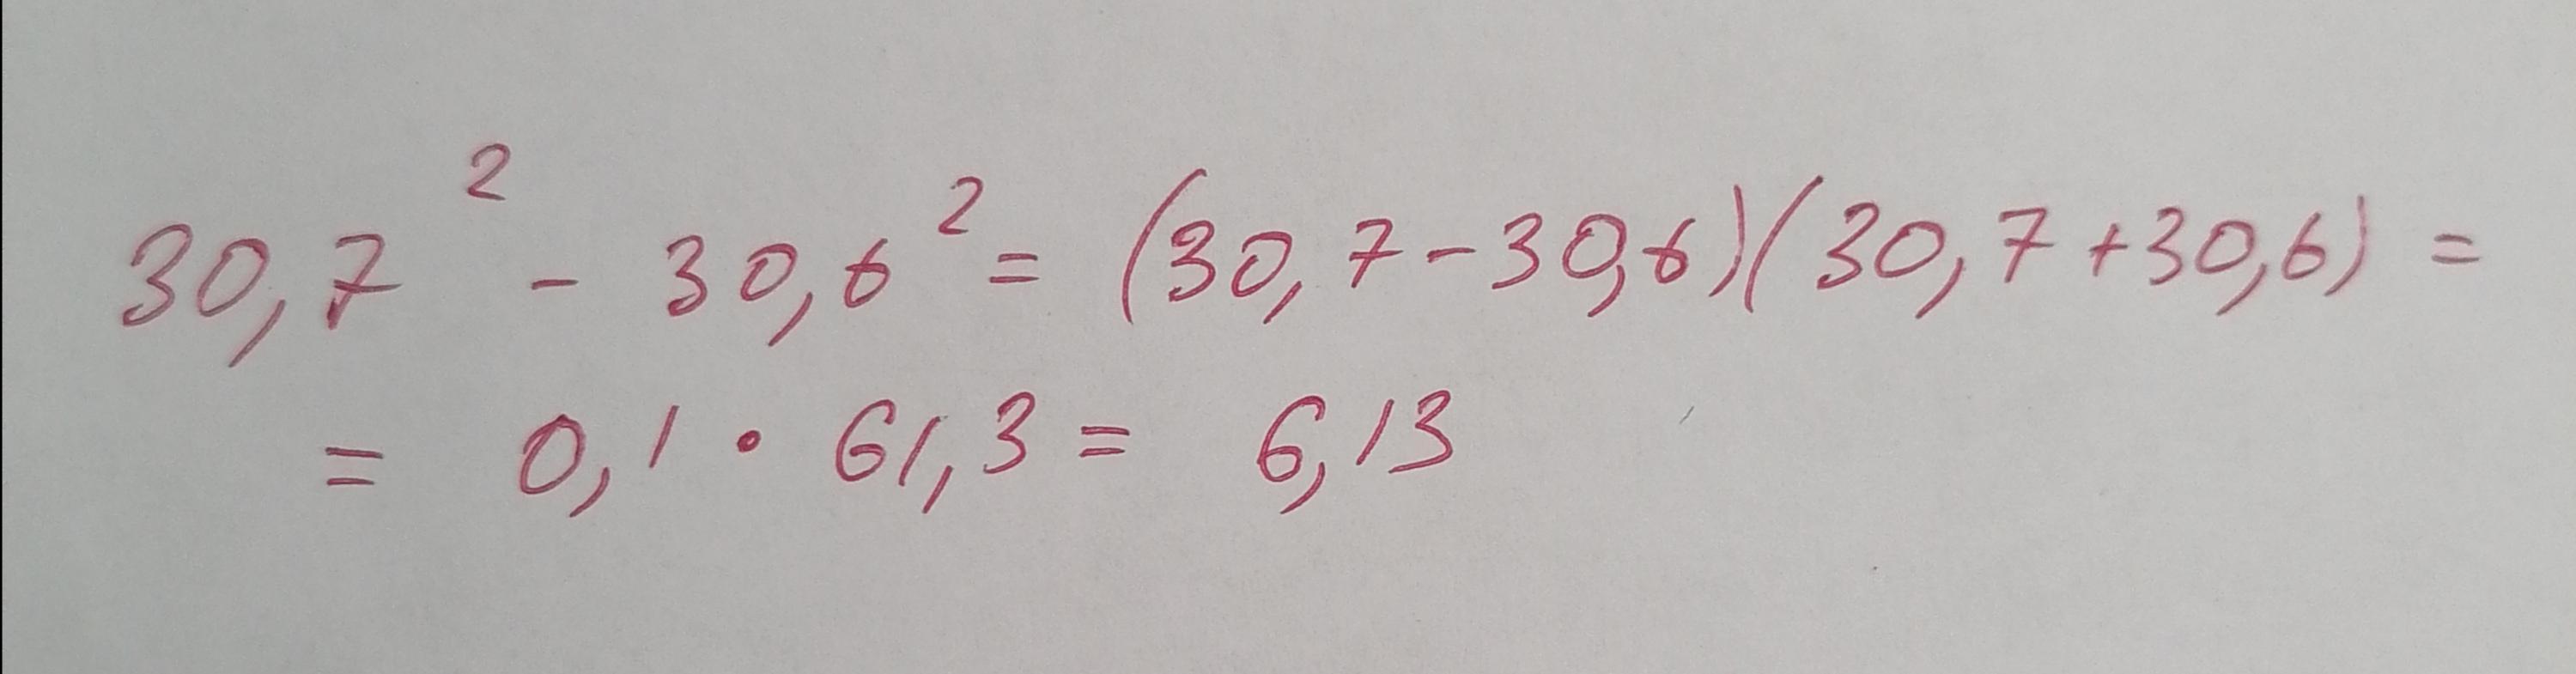 30,7² - 30,6² = (30,7-30,6)(30,7+30,6) =
= 0,1 · 61,3 = 6,13